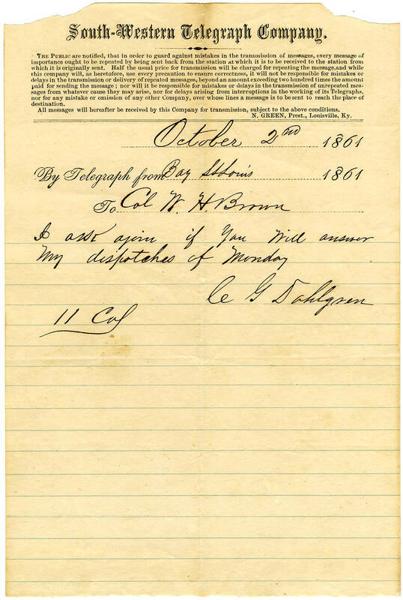 South-Western Telegraph Company.
THE PUBLIC are notified, that in order to guard against mistakes in the transmission of messages, every message of
importance ought to be repeated by being sent back from the station at which it is to be received to the station from
which it is originally sent. Half the usual price for transmission will be charged for repeating the message, and while
this company will, as heretofore, use every precaution to ensure correctness, it will not be responsible for mistakes or
delays in the transmission or delivery of repeated messages, beyond an amount exceeding two hundred times the amount
paid for sending the message; nor will it be responsible for mistakes or delays in the transmission of unrepeated mes-
sages from whatever cause they may arise, nor for delays arising from interruptions in the working of its Telegraphs,
nor for any mistake or omission of any other Company, over whose lines a message is to be sent to reach the place of
destination.
All messages will hereafter be received by this Company for transmission, subject to the above conditions.
N. GREEN, Prest., Louisville, Ky.
October 2nd 1861
By Telegraph from Bay St Louis 1861
To Col W. H. Brown
I ask again if You Will answer
My dispatches of Monday
C G Dahlgren
11 Col